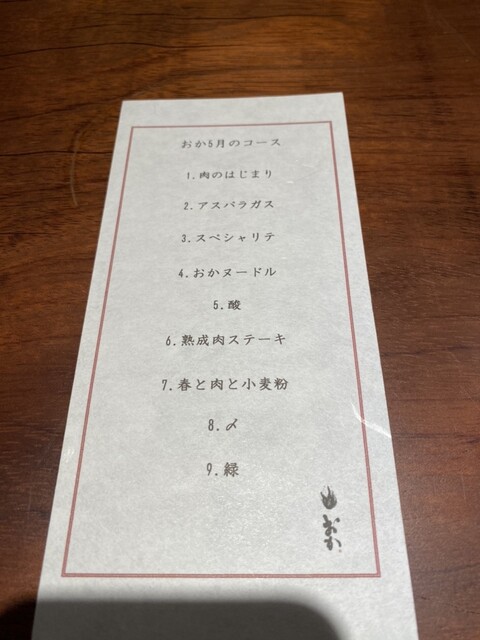 おか5月のコース
1.肉のはじまり
2.アスパラガス
3.スペシャリテ
4.おかヌードル
5.酸
6.熟成肉ステーキ
7.春と肉と小麦粉
8.〆
9.緑
おか